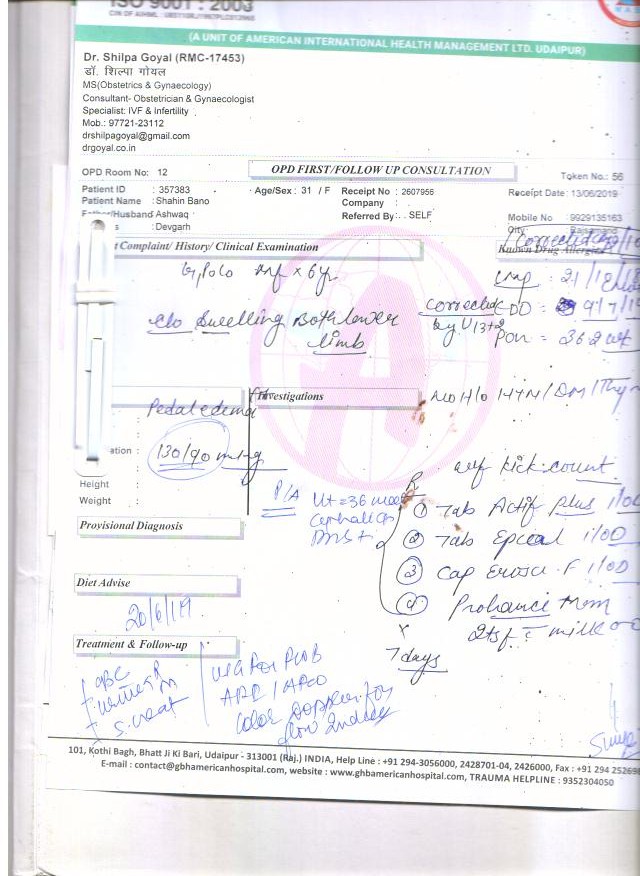 ISO 9001 : 2008
(A UNIT OF AMERICAN INTERNATIONAL HEALTH MANAGEMENT LTD. UDAIPUR)
Dr. Shilpa Goyal (RMC-17453)
डॉ. शिल्पा गोयल
MS(Obstetrics & Gynaecology)
Consultant- Obstetrician & Gynaecologist
Specialist: IVF & Infertility
Mob.: 97721-23112
drshilpagoyal@gmail.com
drgoyal.co.in
OPD Room No: 12
OPD FIRST/FOLLOW UP CONSULTATION
Token No.: 56
Patient ID : 357383
Age/Sex : 31 / F
Receipt No : 2607956
Receipt Date : 13/06/2019
Patient Name : Shahin Bano
Company :
/Husband Ashwaq
Referred By : SELF
Mobile No 9929135163
: Devgarh
City
t Complaint/ History/ Clinical Examination
Known Drug Allergies
c/o Swelling Both lower
limb
Corrected
EDD : 9/7/1
by U
No H/o HTN/DM/Thy
Investigations
Pedal edema
130/90 mmHg
ation :
Height :
Weight :
P/A
Ut = 36
kick count
R
① Tab Actif plus 1/OD
② Tab 1/OD
③ Cap F 1/OD
④ Prohance Mom
2tsf c milk OD
x
7 days
Provisional Diagnosis
Diet Advise
20/6/19
Treatment & Follow-up
CBC
Urine R
M
S. creat
USG for FWB
color doppler for
flow
101, Kothi Bagh, Bhatt Ji Ki Bari, Udaipur - 313001 (Raj.) INDIA, Help Line : +91 294-3056000, 2428701-04, 2426000, Fax : +91 294 252696
E-mail : contact@gbhamericanhospital.com, website : www.ghbamericanhospital.com, TRAUMA HELPLINE : 9352304050